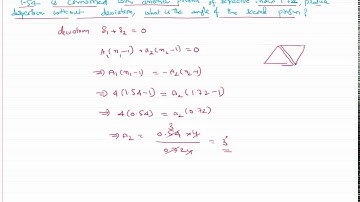 1.54 is combined with another prism of refractive index 1.72 produce
dispersion without deviation, what is the angle of the second prism?
deviation δ1+δ2 = 0
A1(n1-1) + a2(n2-1) = 0
⇒ A1(n1-1) = -A2(n2-1)
⇒ 4(1.54-1) = a2(1.72-1)
⇒ 4(0.54) = a2(0.72)
⇒ a2 = = 3°